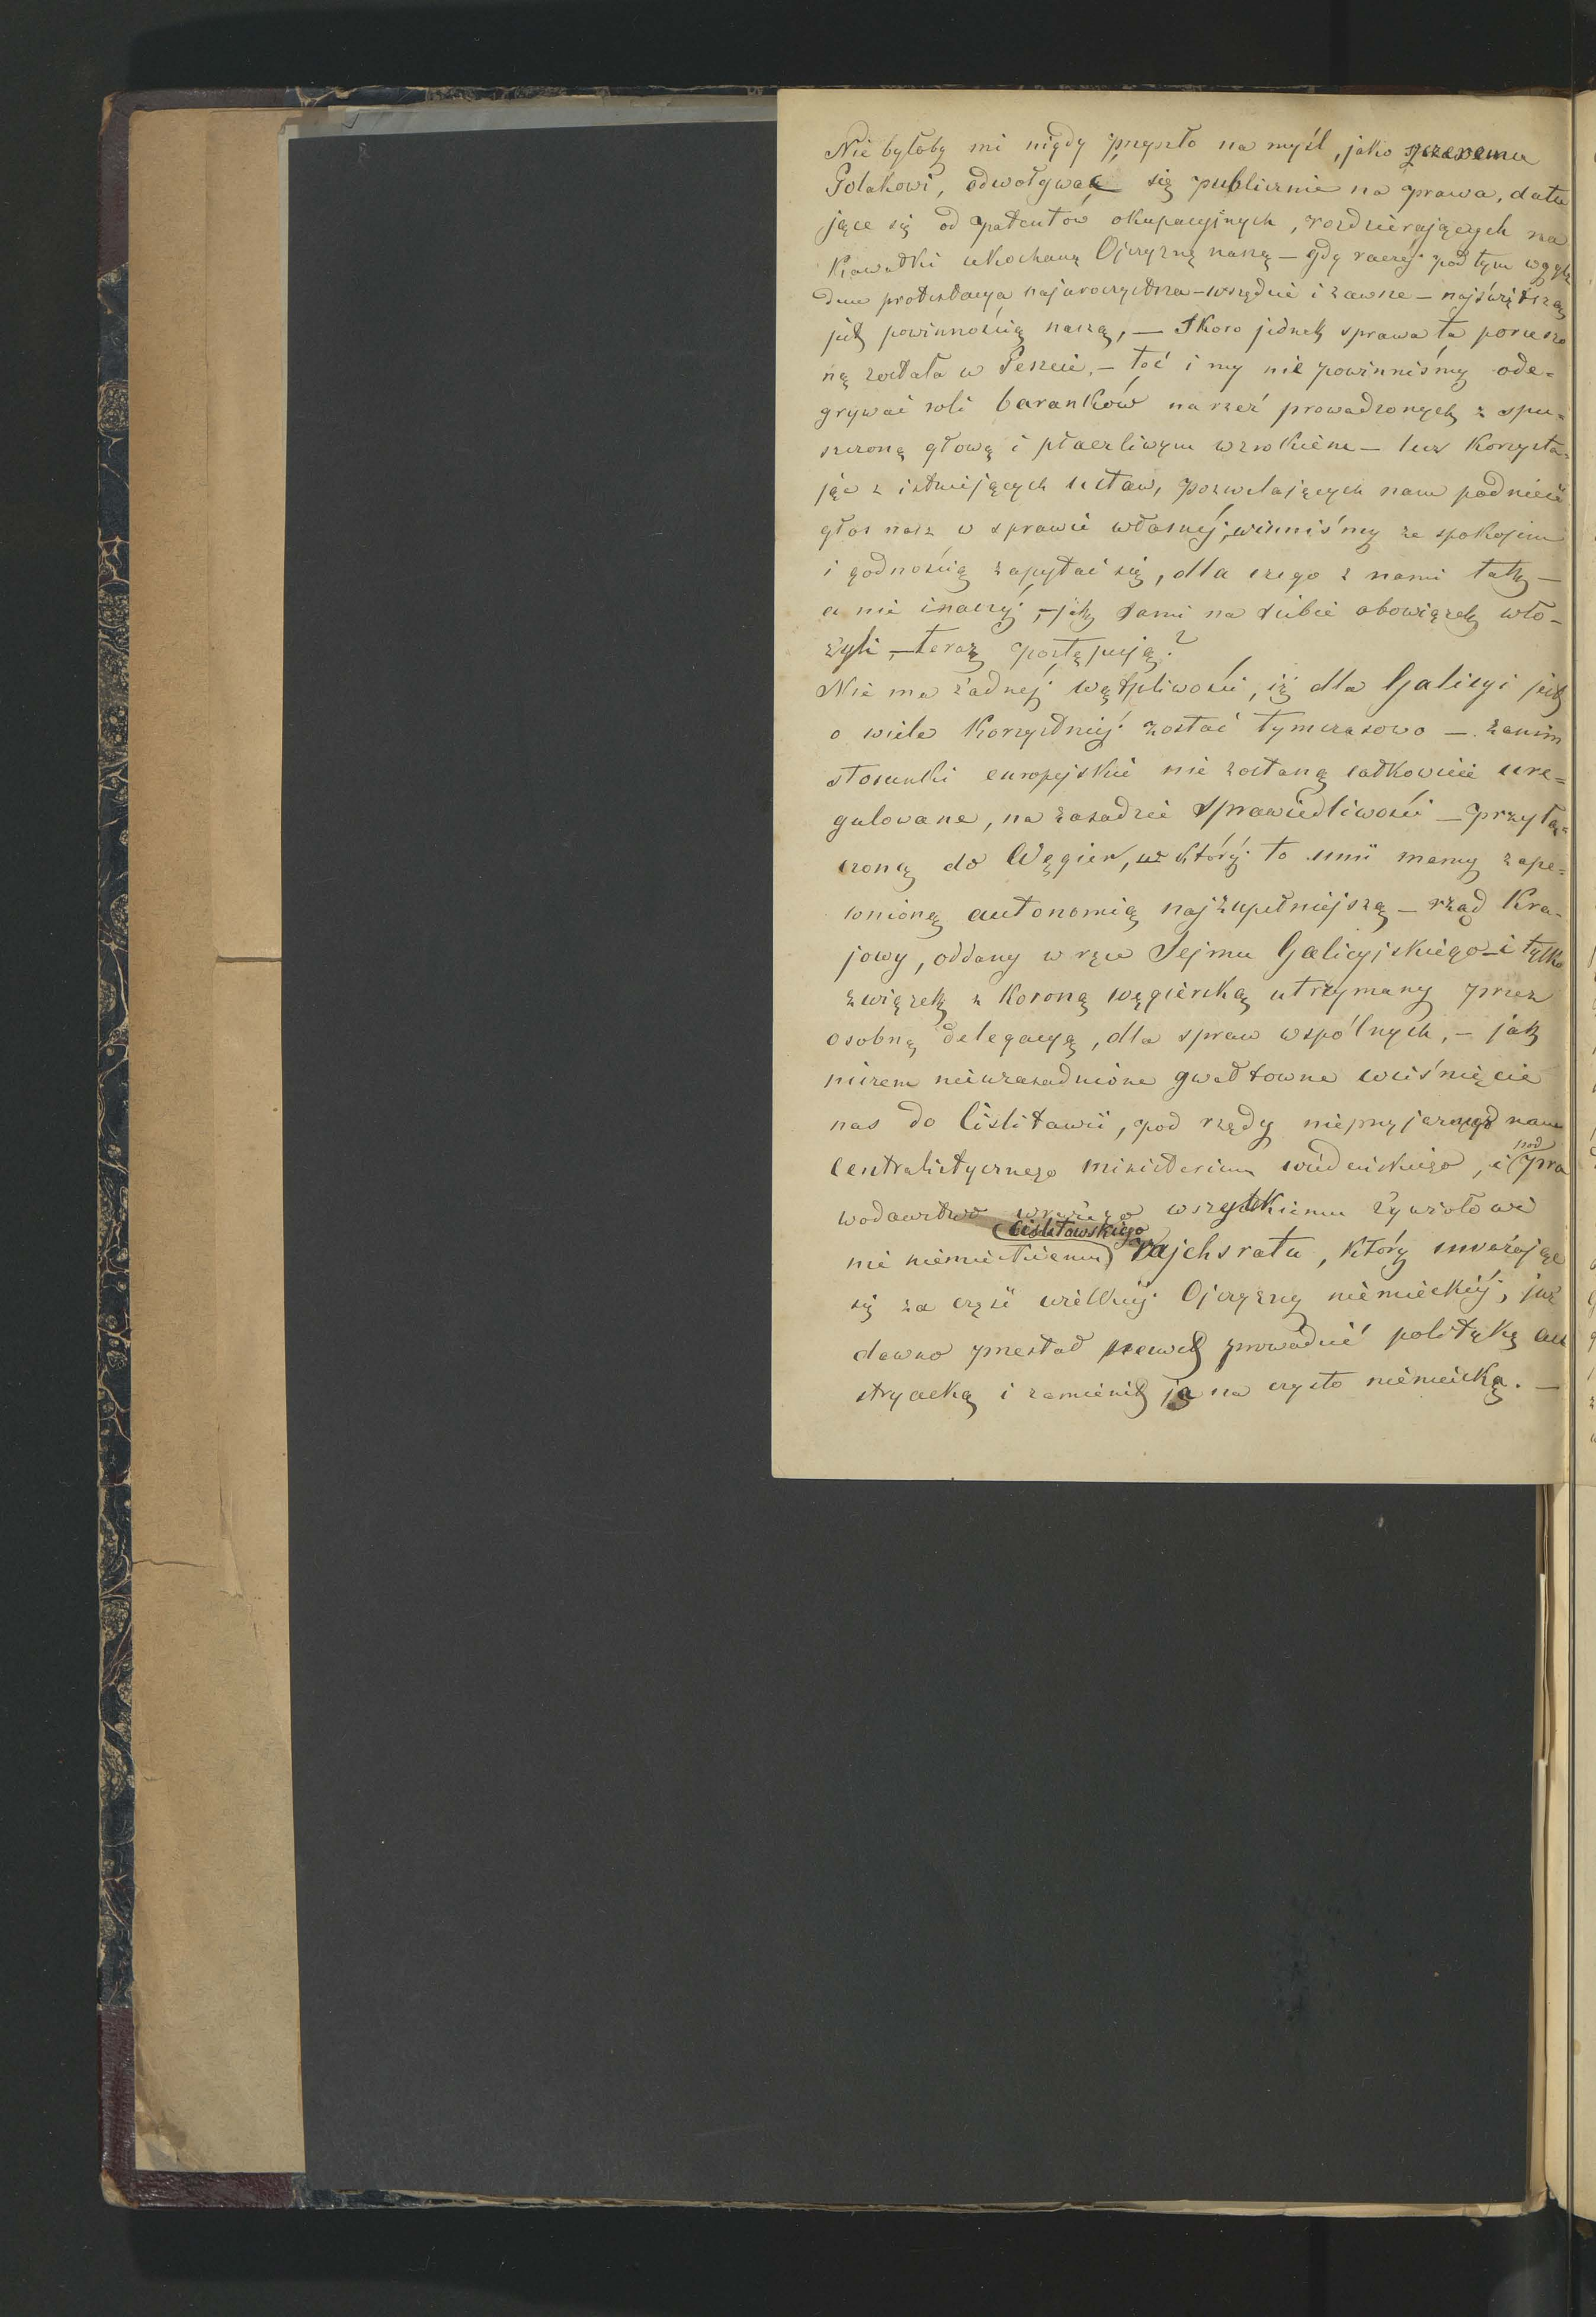 Nie byłoby mi nigdy przyszło na myśl, jako szczeremu
Polakowi, odwoływać się publicznie na prawa, datu
jące się od patentów okupacyjnych, rozdzierających na
Kawałki ukochaną Ojczyznę naszą – gdy raczéj pod tym wzglę
dem protestacya najuroczystsza – wszędzie i zawsze – najświętszą
jest powinnością naszą, — Skoro jednak sprawa ta porusz
ną została w Peszcie, – toć i my nie powinniśmy ode=
grywać roli baranków na rzeź prowadzonych z spu=
szczoną głową i płaczliwym wzrokiem – lecz Korzysta=
jąc z istniejących ustaw, pozwalających nam podnieść
głos nasz w sprawie własnéj, winniśmy ze spokojem
i godnością zapytać się, dla czego z nami tak –
a nie inaczéj, – jak sami na siebie obowiązek wło–
żyli, – teraz postępują?
Nie ma żadnéj wątpliwości, iż dla Galicyi jest
o wiele Korzystniéj zostać tymczasowo – zanim
stosunki europejskie nie zostaną całkowicie ure=
gulowane, na zasadzie Sprawiedliwości – przyłą=
czoną do Węgier, w któréj to unii mamy zape=
wnioną autonomią najzupełniejszą – rząd Kra–
jowy, oddany w ręce Sejmu Galicyjskiego – i tylko
związek z Koroną węgierską utrzymany przez
osobną delegacyą, dla spraw wspólnych, – jak
niczem nieuzasadnione gwałtowne wciśnięcie
nas do Cislitawii, pod rządy nieprzyjaznego nam
centralistycznego ministerium wiedeńskiego, i pod pra
wodawstwo wrogiego wszystkiemu żywiołowi
nie niemieckiemu Cislitawskiego rajchsratu, który uważając
się za część wielkiéj Ojczyzny niemieckiéj, już
dawno przestał prowadzić politykę au
stryacką i zamienił ją na czysto niemiecką. —